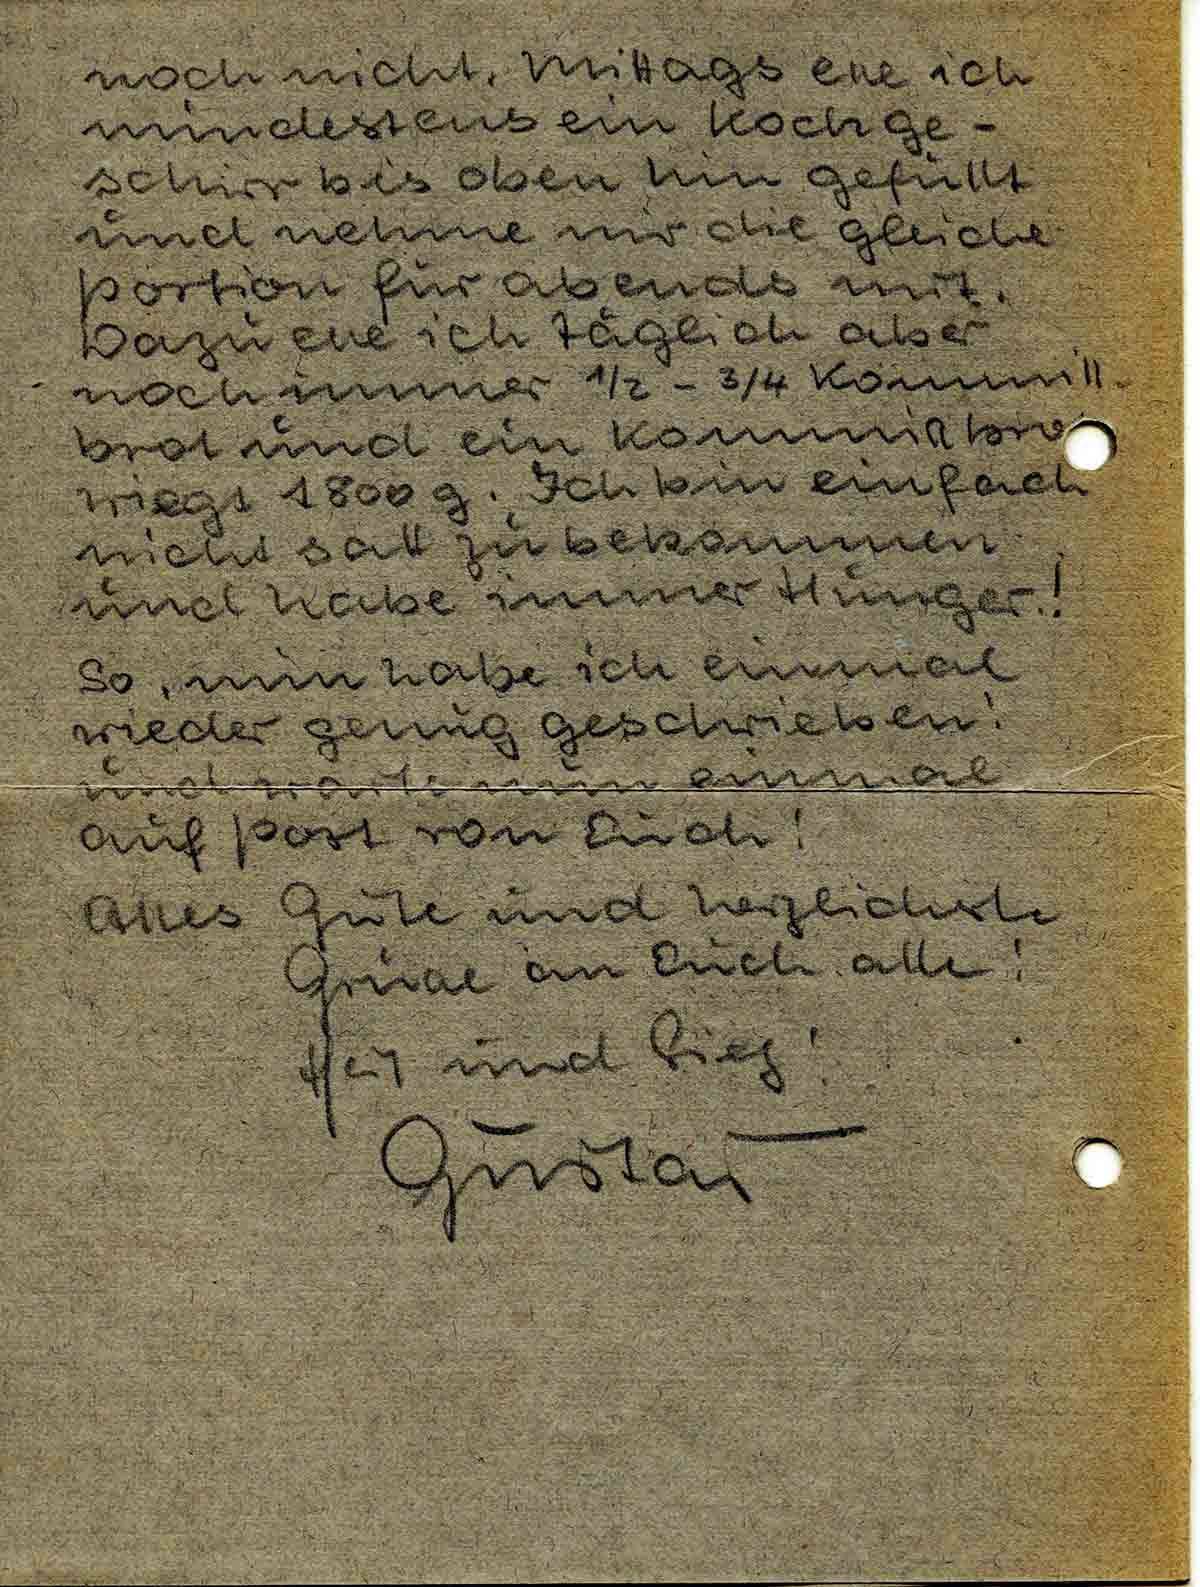 noch nicht. Mittags esse ich
mindestens ein Kochge-
schirr bis oben hin gefüllt
und nehme mir die gleiche
Portion für abends mit.
Dazu esse ich täglich aber
noch immer 1/2 - 3/4 Kommiß-
brot und ein Kommißbro
wiegt 1800 g. Ich bin einfach
nicht satt zu bekommen
und habe immer Hunger.!
So, nun habe ich einmal
wieder genug geschrieben!
und warte nun einmal
auf Post von Euch!
Alles Gute und herzlichste
Grüsse an Euch alle!
Heil und Sieg!
Gustav